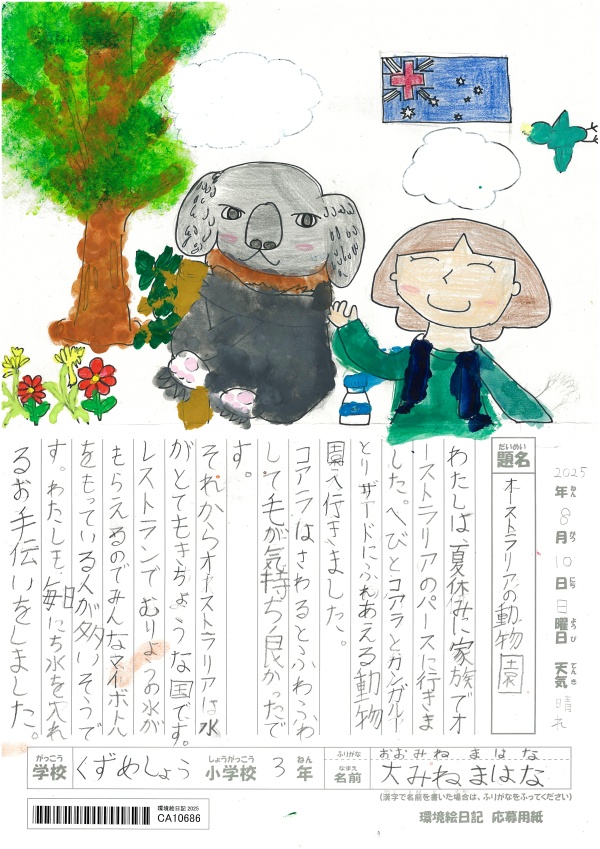 2025年ねん8月がつ10日にち日曜日ようび 天気てんき晴れ
題名だいめい オーストラリアの動物園
わたしは、夏休みに家族でオ
ーストラリアのパースに行きま
した。へびとコアラとカンガルー
とリザードにふれあえる動物
園へ行きました。
コアラはさわるとふわふわ
して毛が気持ち良かったで
す。
それからオーストラリアは水
がとてもきちょうな国です。
レストランで むりょうの水が
もらえるのでみんなマイボトル
をもっている人が多いそうで
す。わたしも毎日にち水を入れ
るお手伝いをしました。
学校がっこう くずめしょう 小学校しょうがっこう 3年ねん
ふりがな おおみね まはな
名前なまえ 大みねまはな
(漢字で名前を書いた場合は、ふりがなをふってください)
環境絵日記 2025
CA10686
環境絵日記 応募用紙